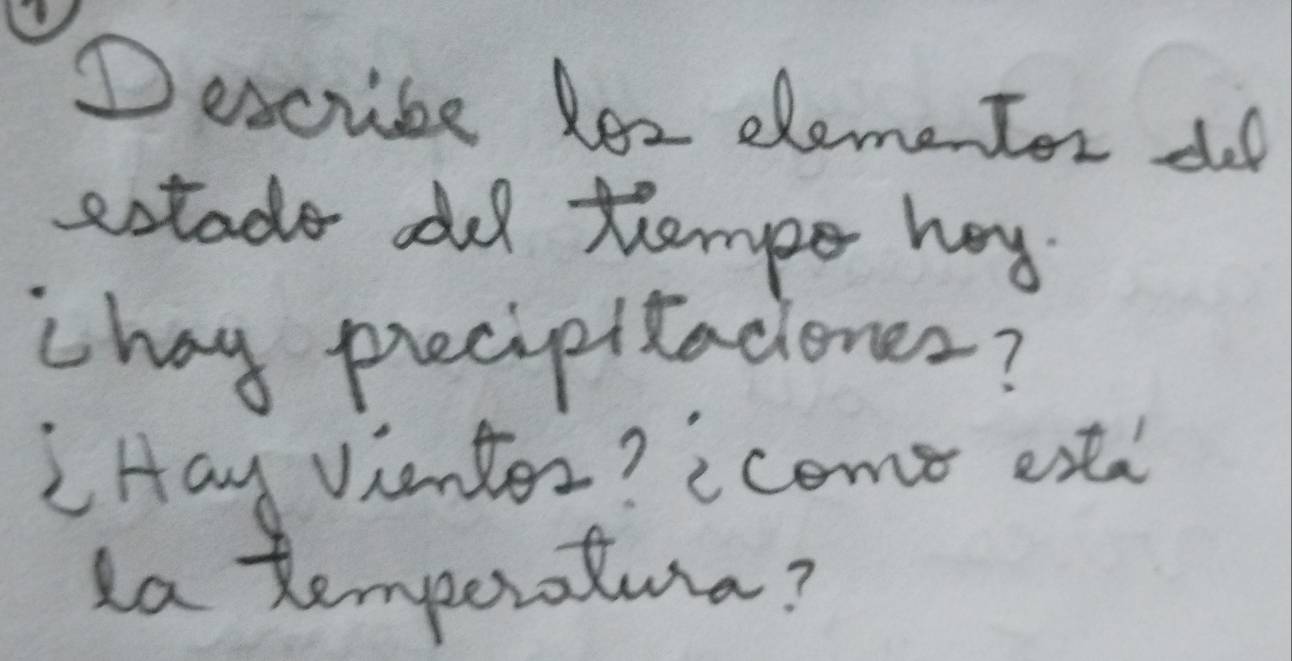 1
Describe los elementos del
estado del tiempo hoy.
¿hay precipitaciones?
¿Hay vientos? ¿como está
la temperatura?